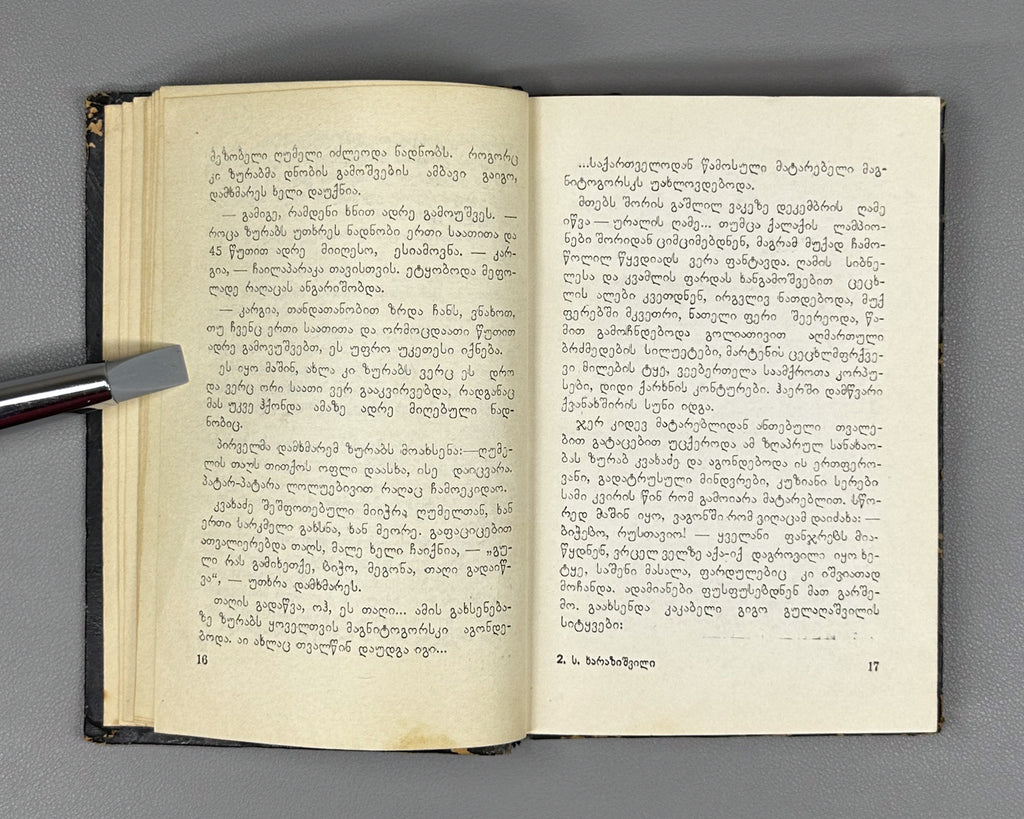 მეზობელი ღუმელი იძლეოდა ნადნობს. როგორც
კი ზურაბმა დნობის გამოშვების ამბავი გაიგო,
დამხმარეს ხელი დაუქნია.
— გამიგე, რამდენი ხნით ადრე გამოუშვეს. —
როცა ზურაბს უთხრეს ნადნობი ერთი საათითა და
45 წუთით ადრე მიიღესო, ესიამოვნა. — კარ-
გია, — ჩაილაპარაკა თავისთვის. ეტყობოდა მეფო-
ლადე რაღაცას ანგარიშობდა.
— კარგია, თანდათანობით ზრდა ჩანს, ვნახოთ,
თუ ჩვენც ერთი საათითა და ორმოცდაათი წუთით
ადრე გამოვუშვებთ, ეს უფრო უკეთესი იქნება.
ეს იყო მაშინ, ახლა კი ზურაბს ვერც ეს დრო
და ვერც ორი საათი ვერ გააკვირვებდა, რადგანაც
მას უკვე ჰქონდა ამაზე ადრე მიღებული ნად-
ნობიც.
პირველმა დამხმარემ ზურაბს მოახსენა:—ღუმე-
ლის თაღს თითქოს ოფლი დაასხა, ისე დაიცვარა.
პატარ-პატარა ლოლუებივით რაღაც ჩამოეკიდაო.
კვახაძე შეშფოთებული მიიჭრა ღუმელთან, ხან
ერთი სარკმელი გახსნა, ხან მეორე. გაფაციცებით
ათვალიერებდა თაღს, მალე ხელი ჩაიქნია, — „გუ-
ლი რას გამიხეთქე, ბიჭო, მეგონა, თაღი გადაიწ-
ვა“, — უთხრა დამხმარეს.
თაღის გადაწვა, ოჰ, ეს თაღი... ამის გახსენება-
ზე ზურაბს ყოველთვის მაგნიტოგორსკი აგონდე-
ბოდა. აი ახლაც თვალწინ დაუდგა იგი...
16
...საქართველოდან წამოსული მატარებელი მაგ-
ნიტოგორსკს უახლოვდებოდა.
მთებს შორის გაშლილ ვაკეზე დეკემბრის ღამე
იწვა — ურალის ღამე... თუმცა ქალაქის ლამპიო-
ნები შორიდან ციმციმებდნენ, მაგრამ მუქად ჩამო-
წოლილ წყვდიადს ვერა ფანტავდა. ღამის სიბნე-
ლესა და კვამლის ფარდას ხანგამოშვებით ცეცხ-
ლის ალები კვეთდნენ, ირგვლივ ნათდებოდა, მუქ
ფერებში მკვეთრი, ნათელი ფერი შეერეოდა, წა-
მით გამოჩნდებოდა გოლიათივით აღმართული
ბრძმედების სილუეტები, მარტენის ცეცხლმფრქვე-
ვი მილების ტყე, ვეებერთელა საამქროთა კორპუ-
სები, დიდი ქარხნის კონტურები. ჰაერში დამწვარი
ქვანახშირის სუნი იდგა.
ჯერ კიდევ მატარებლიდან ანთებული თვალე-
ბით გატაცებით უცქეროდა ამ ზღაპრულ სანახაო-
ბას ზურაბ კვახაძე და აგონდებოდა ის ერთფერო-
ვანი, გადატრუსული მინდვრები, კუზიანი სერები
სამი კვირის წინ რომ გამოიარა მატარებლით. სწო-
რედ მაშინ იყო, ვაგონში რომ ვიღაცამ დაიძახა: —
ბიჭებო, რუსთავიო! — ყველანი ფანჯრებს მია-
წყდნენ, ვრცელ ველზე აქა-იქ დაგროვილი იყო ხე-
ტყე, საშენი მასალა, ფარდულებიც კი იშვიათად
მოჩანდა. ადამიანები ფუსფუსებდნენ მათ გარშე-
მო. გაახსენდა კაკაბელი გიგო გულაღაშვილის
სიტყვები:
2. ს. ხარაზიშვილი
17